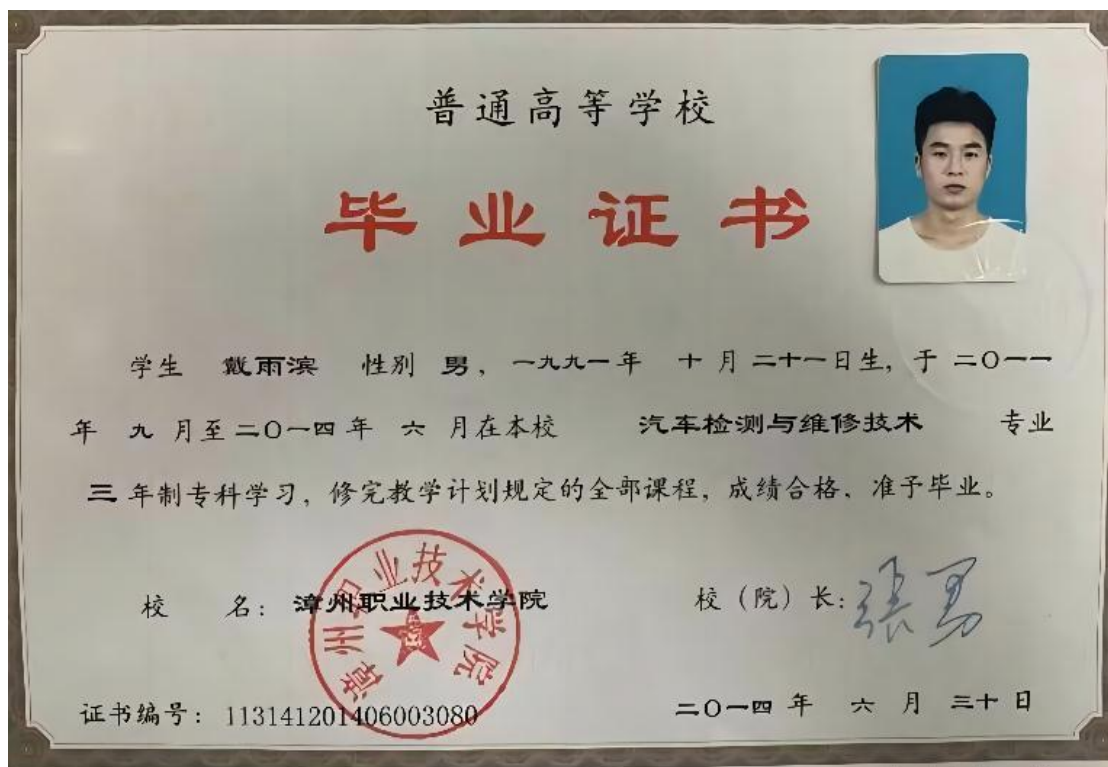 普通高等学校
毕业证书
学生 戴雨滨 性别 男，一九九一年 十月二十一日生，于二〇一一
年 九 月至二〇一四年 六 月在本校 汽车检测与维修技术 专业
三 年制专科学习，修完教学计划规定的全部课程，成绩合格，准予毕业。
校 名：漳州职业技术学院
校（院）长：张勇
漳州职业技术学院
证书编号：113141201406003080
二〇一四 年 六 月 三十 日